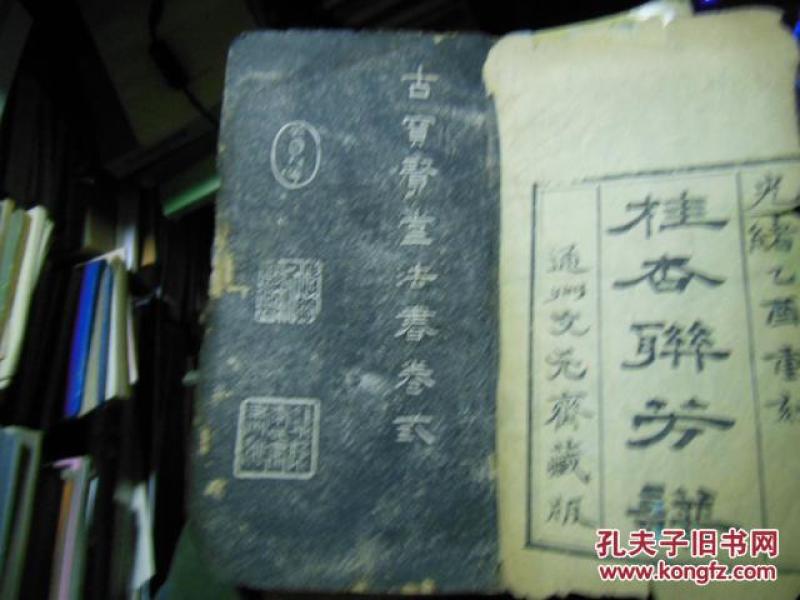 光緒乙酉重刻
桂杏聯芳譜
通州文元齋藏版
古寶賢堂法書卷弍
孔夫子旧书网
www.kongfz.com